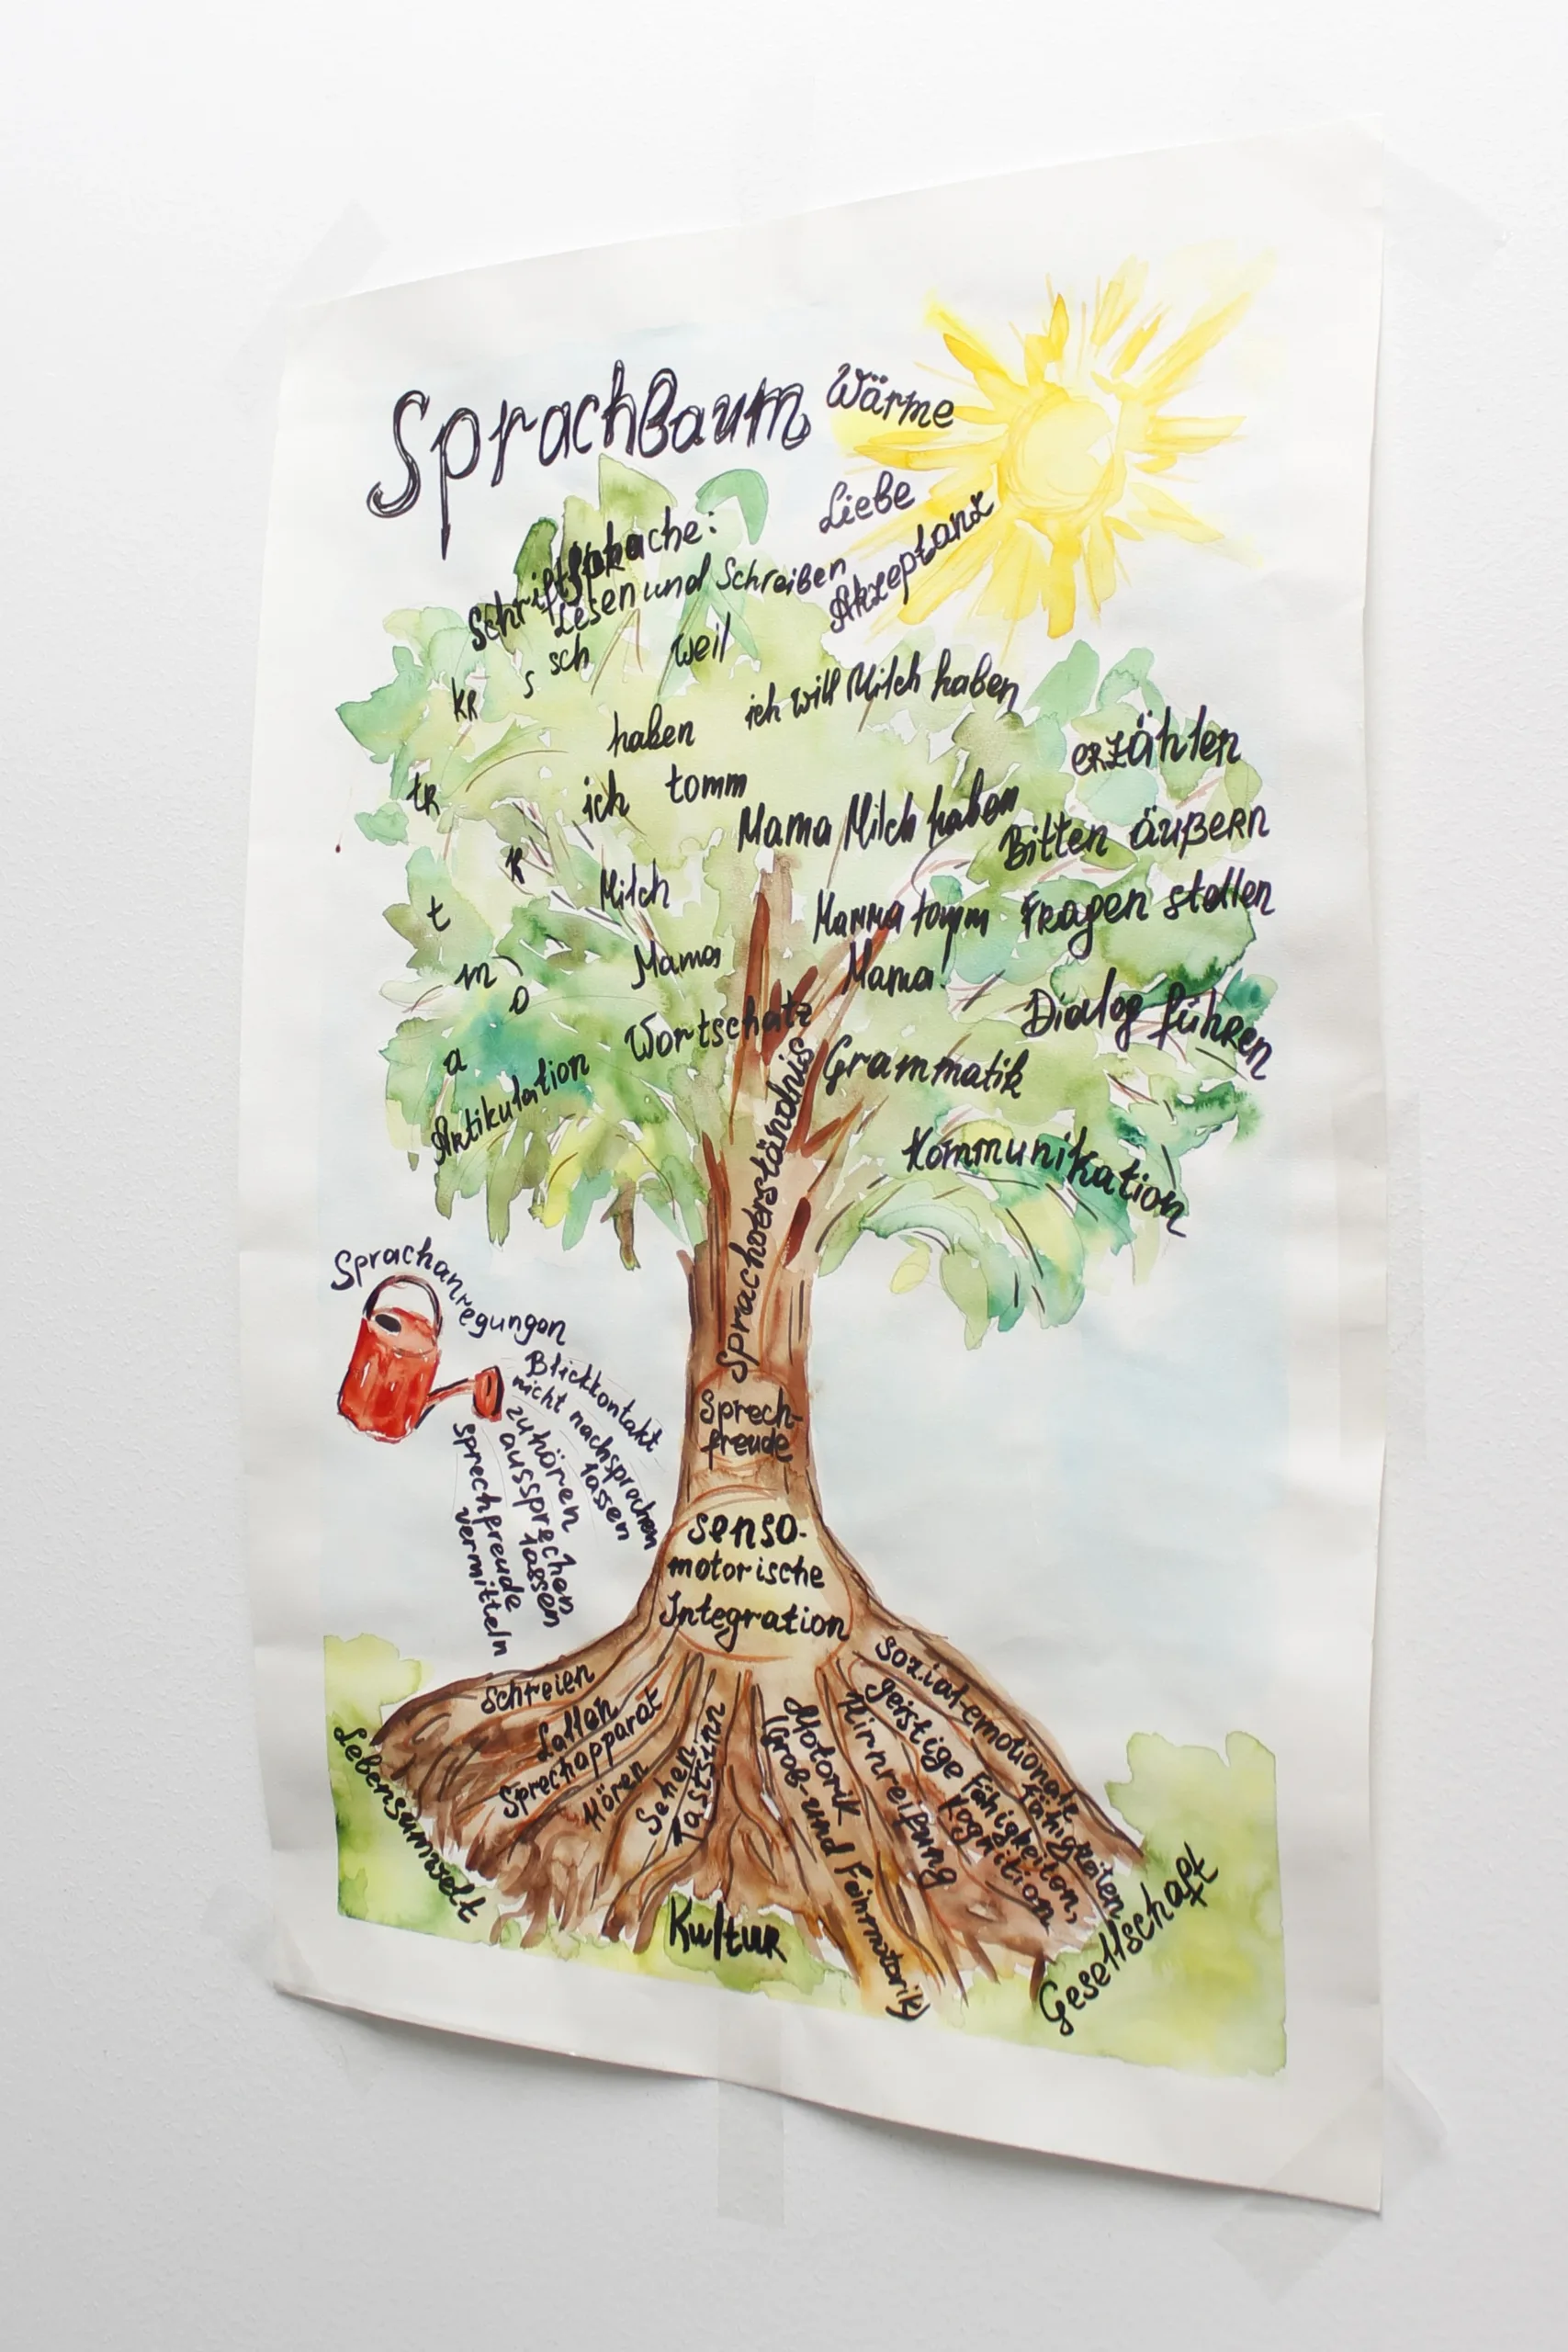 SprachBaum
Wärme
Liebe
Akzeptanz
Schriftsprache:
Lesen und Schreiben
sch
s
weil
KR
haben
ich will Milch haben
erzählen
tR
ich
tomm
Mama Milch haben
Bitten äußern
K
t
Milch
Mamma tomm
Fragen stellen
m
o
Mama
Mama!
Dialog führen
a
Artikulation
Wortschatz
Grammatik
Kommunikation
Sprachverständnis
Sprachanregungon
Blickkontakt
nicht nachsprechen
lassen
zuhören
aussprechen
lassen
sprechfreude
vermitteln
Sprech-
freude
senso-
motorische
Integration
schreien
Lallen
Sprechapparat
Hören
Sehen
Tastsinn
Motorik
(Grob- und Feinmotorik)
Hirnreifung
geistige Fähigkeiten,
Kognition
sozial-emotionale
Fähigkeiten
Lebensumwelt
Kultur
Gesellschaft